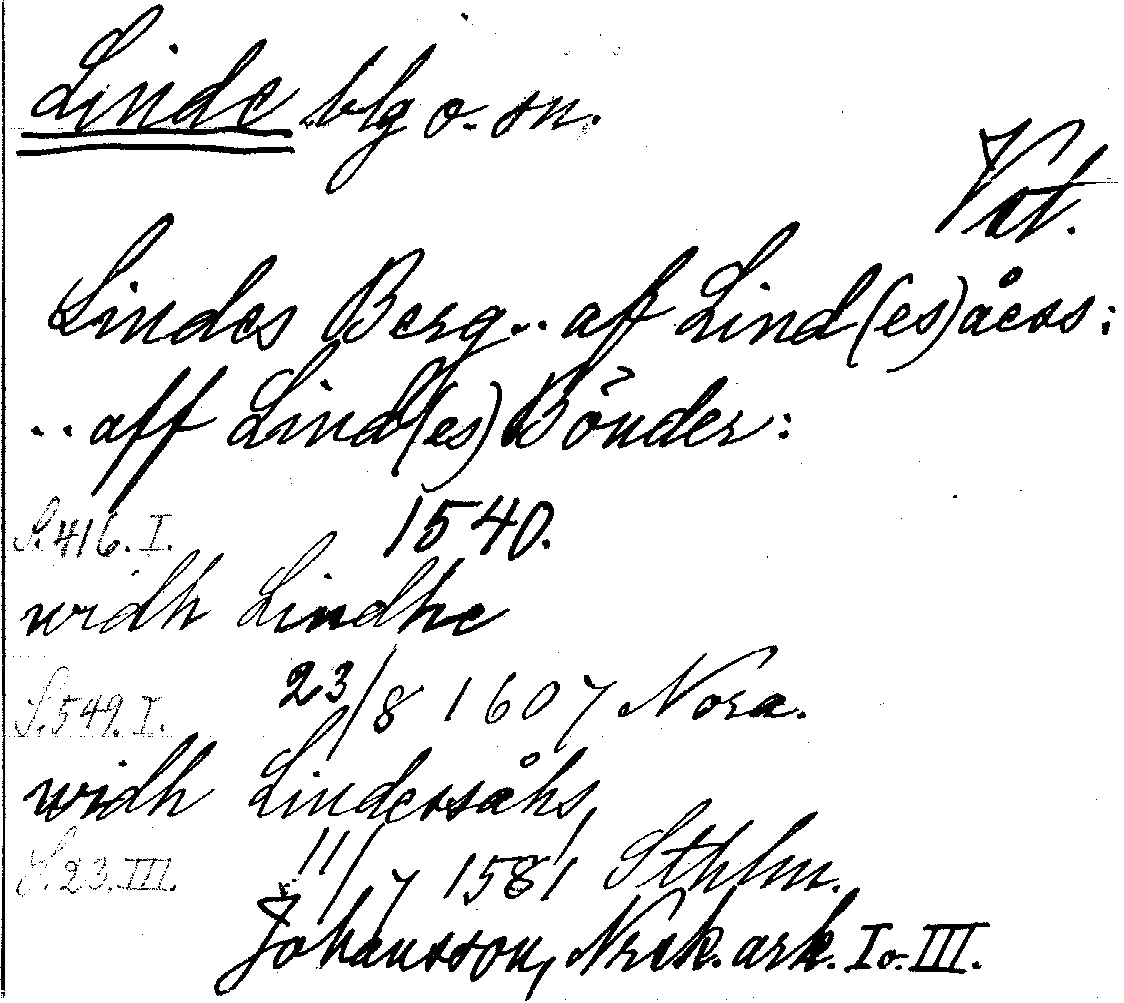 Linde blg o. sn.
Vst.
Lindes Berg.. aff Lind(es)åcss:
.. aff Lind(es) Bönder:
S.416.I. 1540.
widh Lindhe
S.549.I. 23/8 1607 Nora.
widh Lindessåhs,
S.23.III. 11/7 1581 Sthlm.
Johansson, Norsk. ark. I o. III.